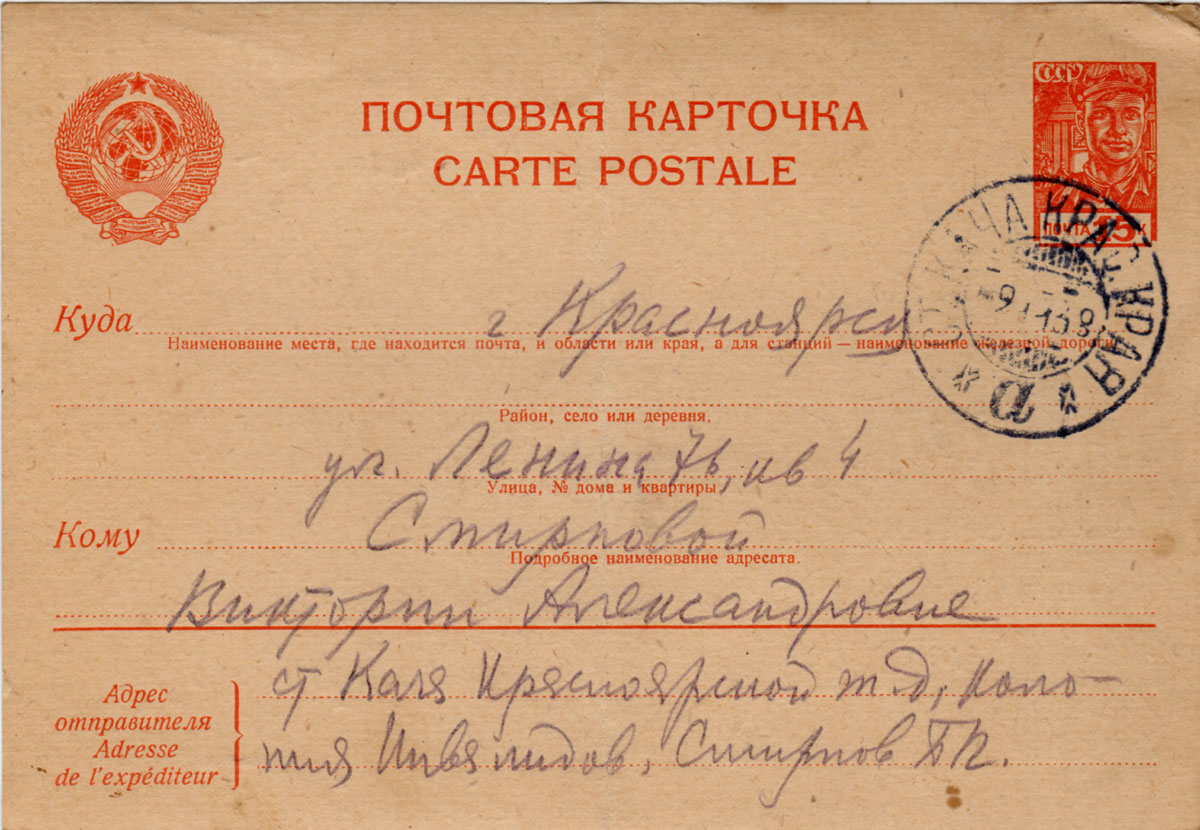 ПОЧТОВАЯ КАРТОЧКА
CARTE POSTALE
СССР
ПОЧТА 15 К
КАЧА КРАС. КРАЯ
а
Куда г Красноярск
Наименование места, где находится почта, и области или края, а для станций — наименование железной дороги
Район, село или деревня.
ул. Ленина 76, кв 4
Улица, № дома и квартиры
Кому Смирновой
Подробное наименование адресата.
Виктории Александровне
Адрес
отправителя
Adresse
de l'expéditeur
ст Кача Красноярской ж.д, Коло-
ния Инвалидов, Смирнов БП.